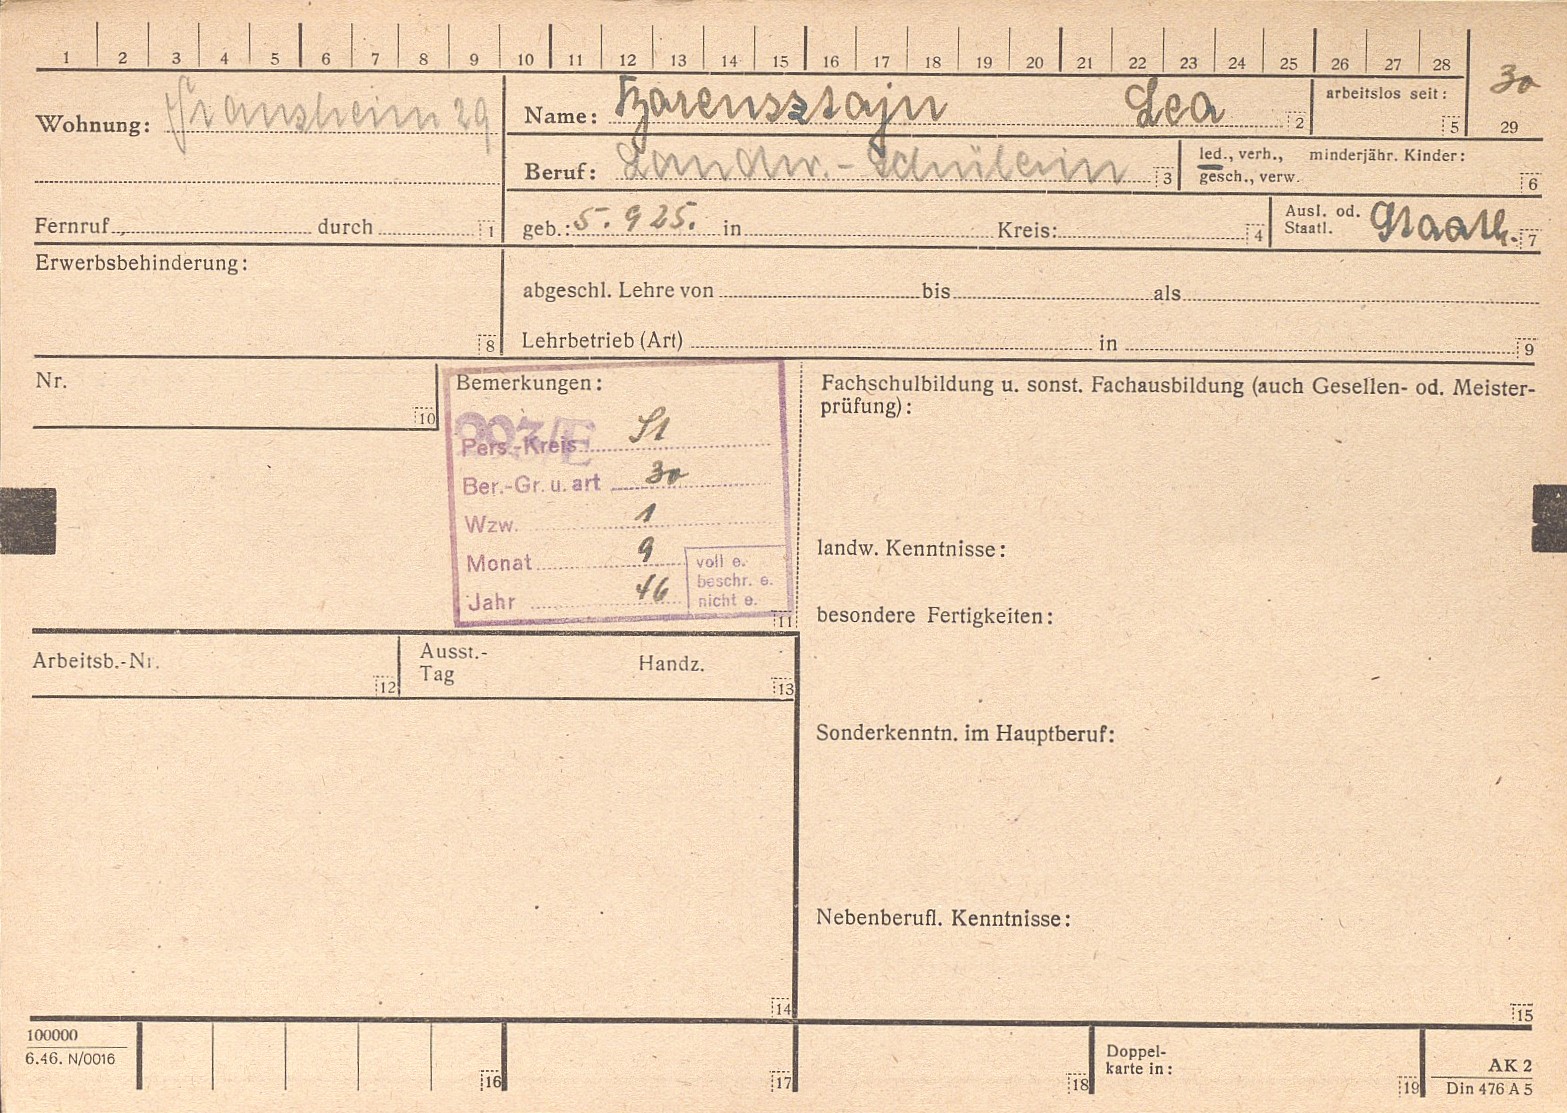 1 2 3 4 5 6 7 8 9 10 11 12 13 14 15 16 17 18 19 20 21 22 23 24 25 26 27 28
30
29
Wohnung: 29
Name: Lea 2
arbeitslos seit: 5
Beruf: Landw.-Schülerin 3
led., verh., minderjähr. Kinder:
gesch., verw. 6
Fernruf durch 1
geb.: 5.9 25. in Kreis: 4
Ausl. od.
Staatl. Staatl. 7
Erwerbsbehinderung:
8
abgeschl. Lehre von bis als
Lehrbetrieb (Art) in 9
Nr.
10
Bemerkungen:
Pers.-Kreis St
Ber.-Gr. u. art 30
Wzw. 1
Monat 9
Jahr 46
voll e.
beschr. e.
nicht e.
11
Fachschulbildung u. sonst. Fachausbildung (auch Gesellen- od. Meister-
prüfung):
landw. Kenntnisse:
besondere Fertigkeiten:
Sonderkenntn. im Hauptberuf:
Nebenberufl. Kenntnisse:
15
Arbeitsb.-Nr.
12
Ausst.-
Tag
Handz.
13
14
100000
6.46. N/0016
16
17
18
Doppel-
karte in:
19
AK 2
Din 476 A 5